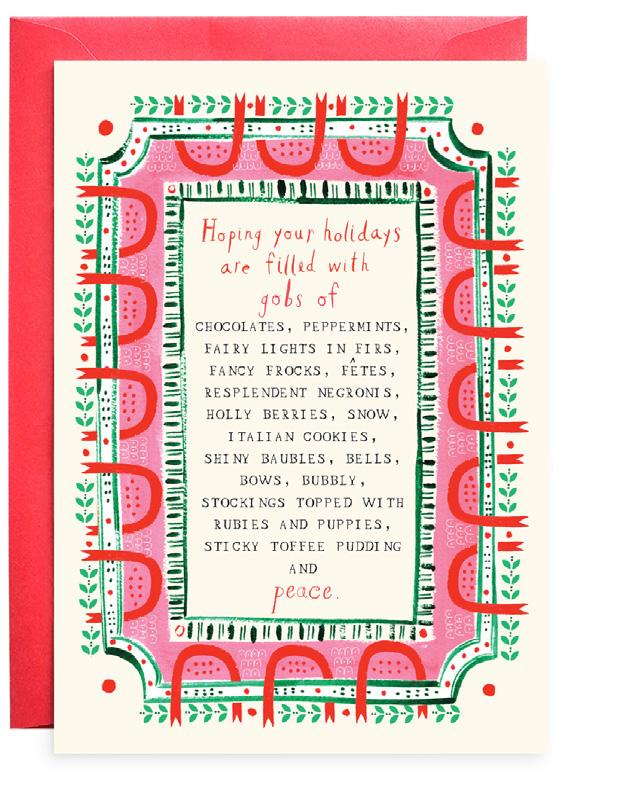 Hoping your holidays
are filled with
gobs of
CHOCOLATES, PEPPERMINTS,
FAIRY LIGHTS IN FIRS,
FANCY FROCKS, FÊTES,
RESPLENDENT NEGRONIS,
HOLLY BERRIES, SNOW,
ITALIAN COOKIES,
SHINY BAUBLES, BELLS,
BOWS, BUBBLY,
STOCKINGS TOPPED WITH
RUBIES AND PUPPIES,
STICKY TOFFEE PUDDING
AND
peace.